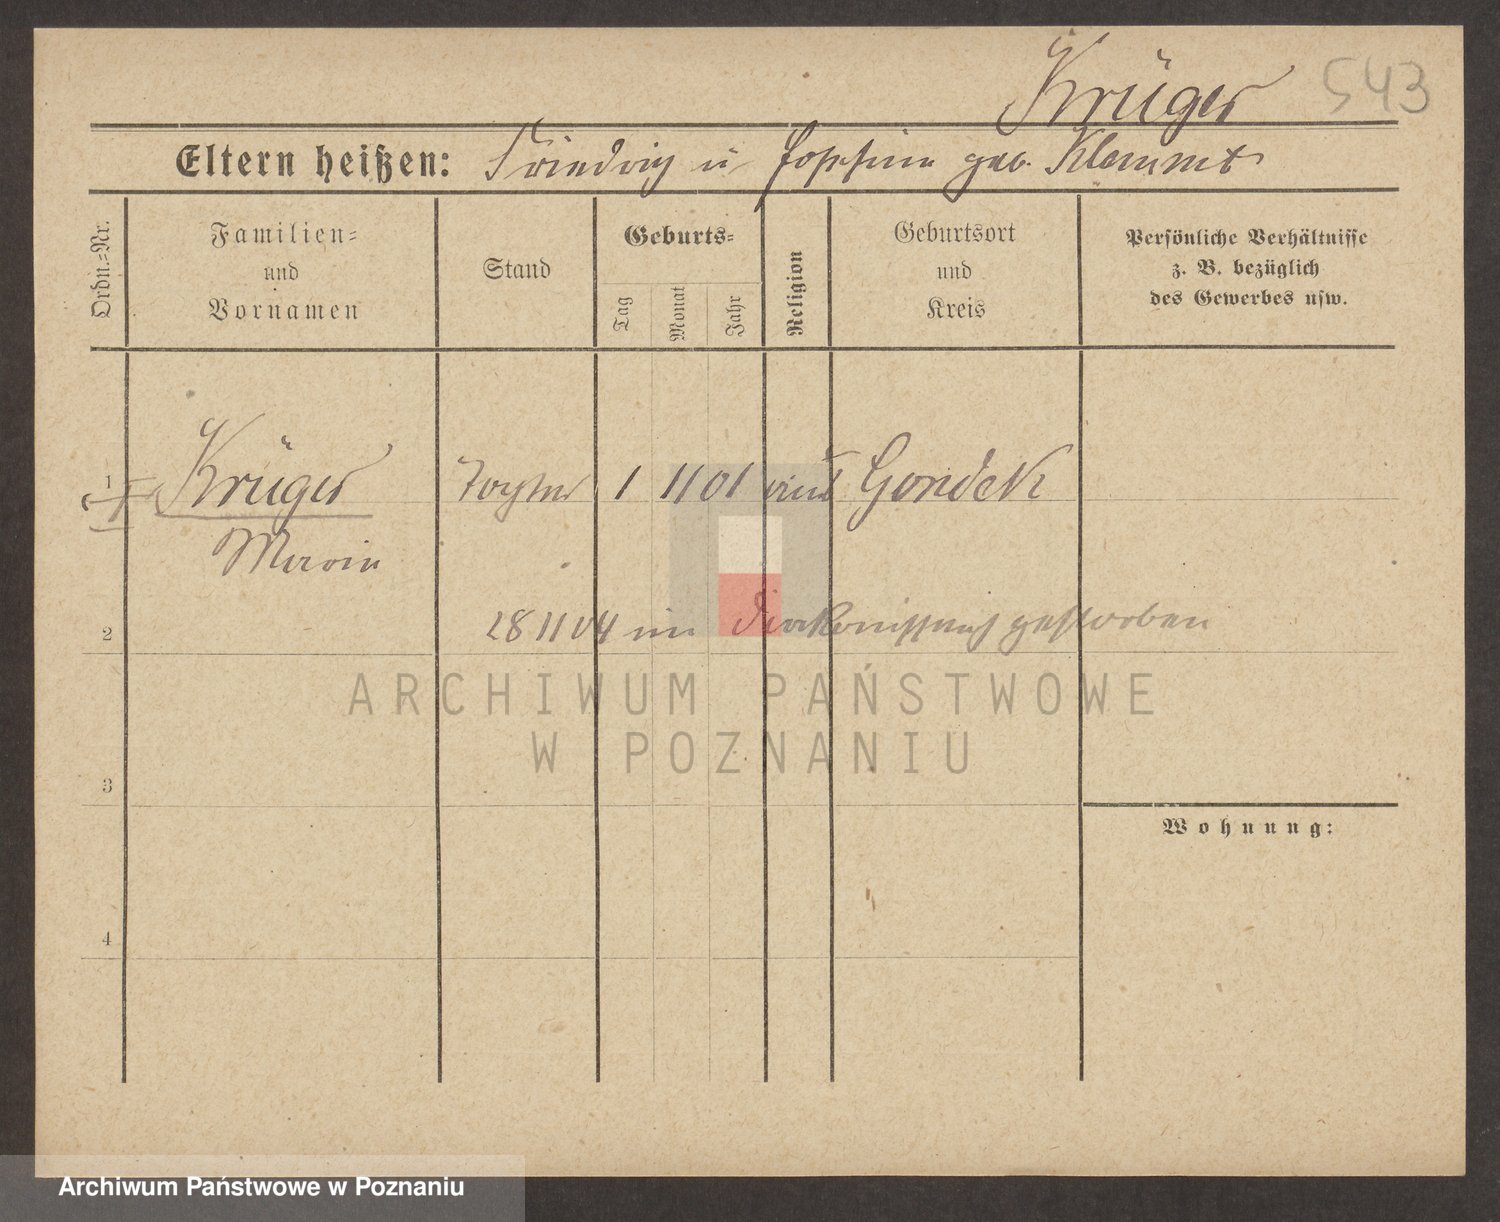 Krüger 543
Eltern heißen: Friedrich u Josefine geb. Klammt
Ordn.-Nr.
Familien-
und
Vornamen
Stand
Geburts-
Tag
Monat
Jahr
Religion
Geburtsort
und
Kreis
Persönliche Verhältnisse
z. B. bezüglich
des Gewerbes usw.
1 Krüger Tochter 1 11 01 Gondek
Marie
2 28 11 04 im gestorben
ARCHIWUM PAŃSTWOWE
W POZNANIU
3
Wohnung:
4
Archiwum Państwowe w Poznaniu